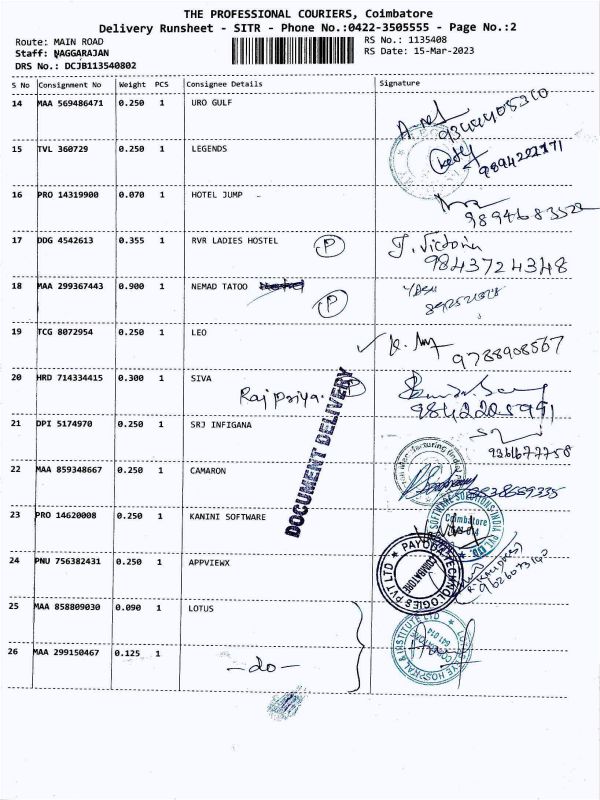 THE PROFESSIONAL COURIERS, Coimbatore
Delivery Runsheet - SITR - Phone No.:0422-3505555 - Page No.:2
Route: MAIN ROAD
RS No.: 1135408
Staff: NAGGARAJAN
RS Date: 15-Mar-2023
DRS No.: DCJB113540802
S No Consignment No Weight PCS Consignee Details Signature
14 MAA 569486471 0.250 1 URO GULF
15 TVL 360729 0.250 1 LEGENDS
16 PRO 14319900 0.070 1 HOTEL JUMP
17 DDG 4542613 0.355 1 RVR LADIES HOSTEL P J. Victoria
9843724348
18 MAA 299367443 0.900 1 NEMAD TATOO
P
19 TCG 8072954 0.250 1 LEO
9788908567
20 HRD 714334415 0.300 1 SIVA P
Rajpriya.
DOCUMENT DELIVERY
21 DPI 5174970 0.250 1 SRJ INFIGANA
22 MAA 859348667 0.250 1 CAMARON
23 PRO 14620008 0.250 1 KANINI SOFTWARE
SOFTWARE SOLUTIONS INDIA
Coimbatore
24 PNU 756382431 0.250 1 APPVIEWX
TECHNOLOGIES PVT LTD
COIMBATORE
25 MAA 858809030 0.090 1 LOTUS
26 MAA 299150467 0.125 1 -do-
HOSPITAL & INSTITUTE LTD